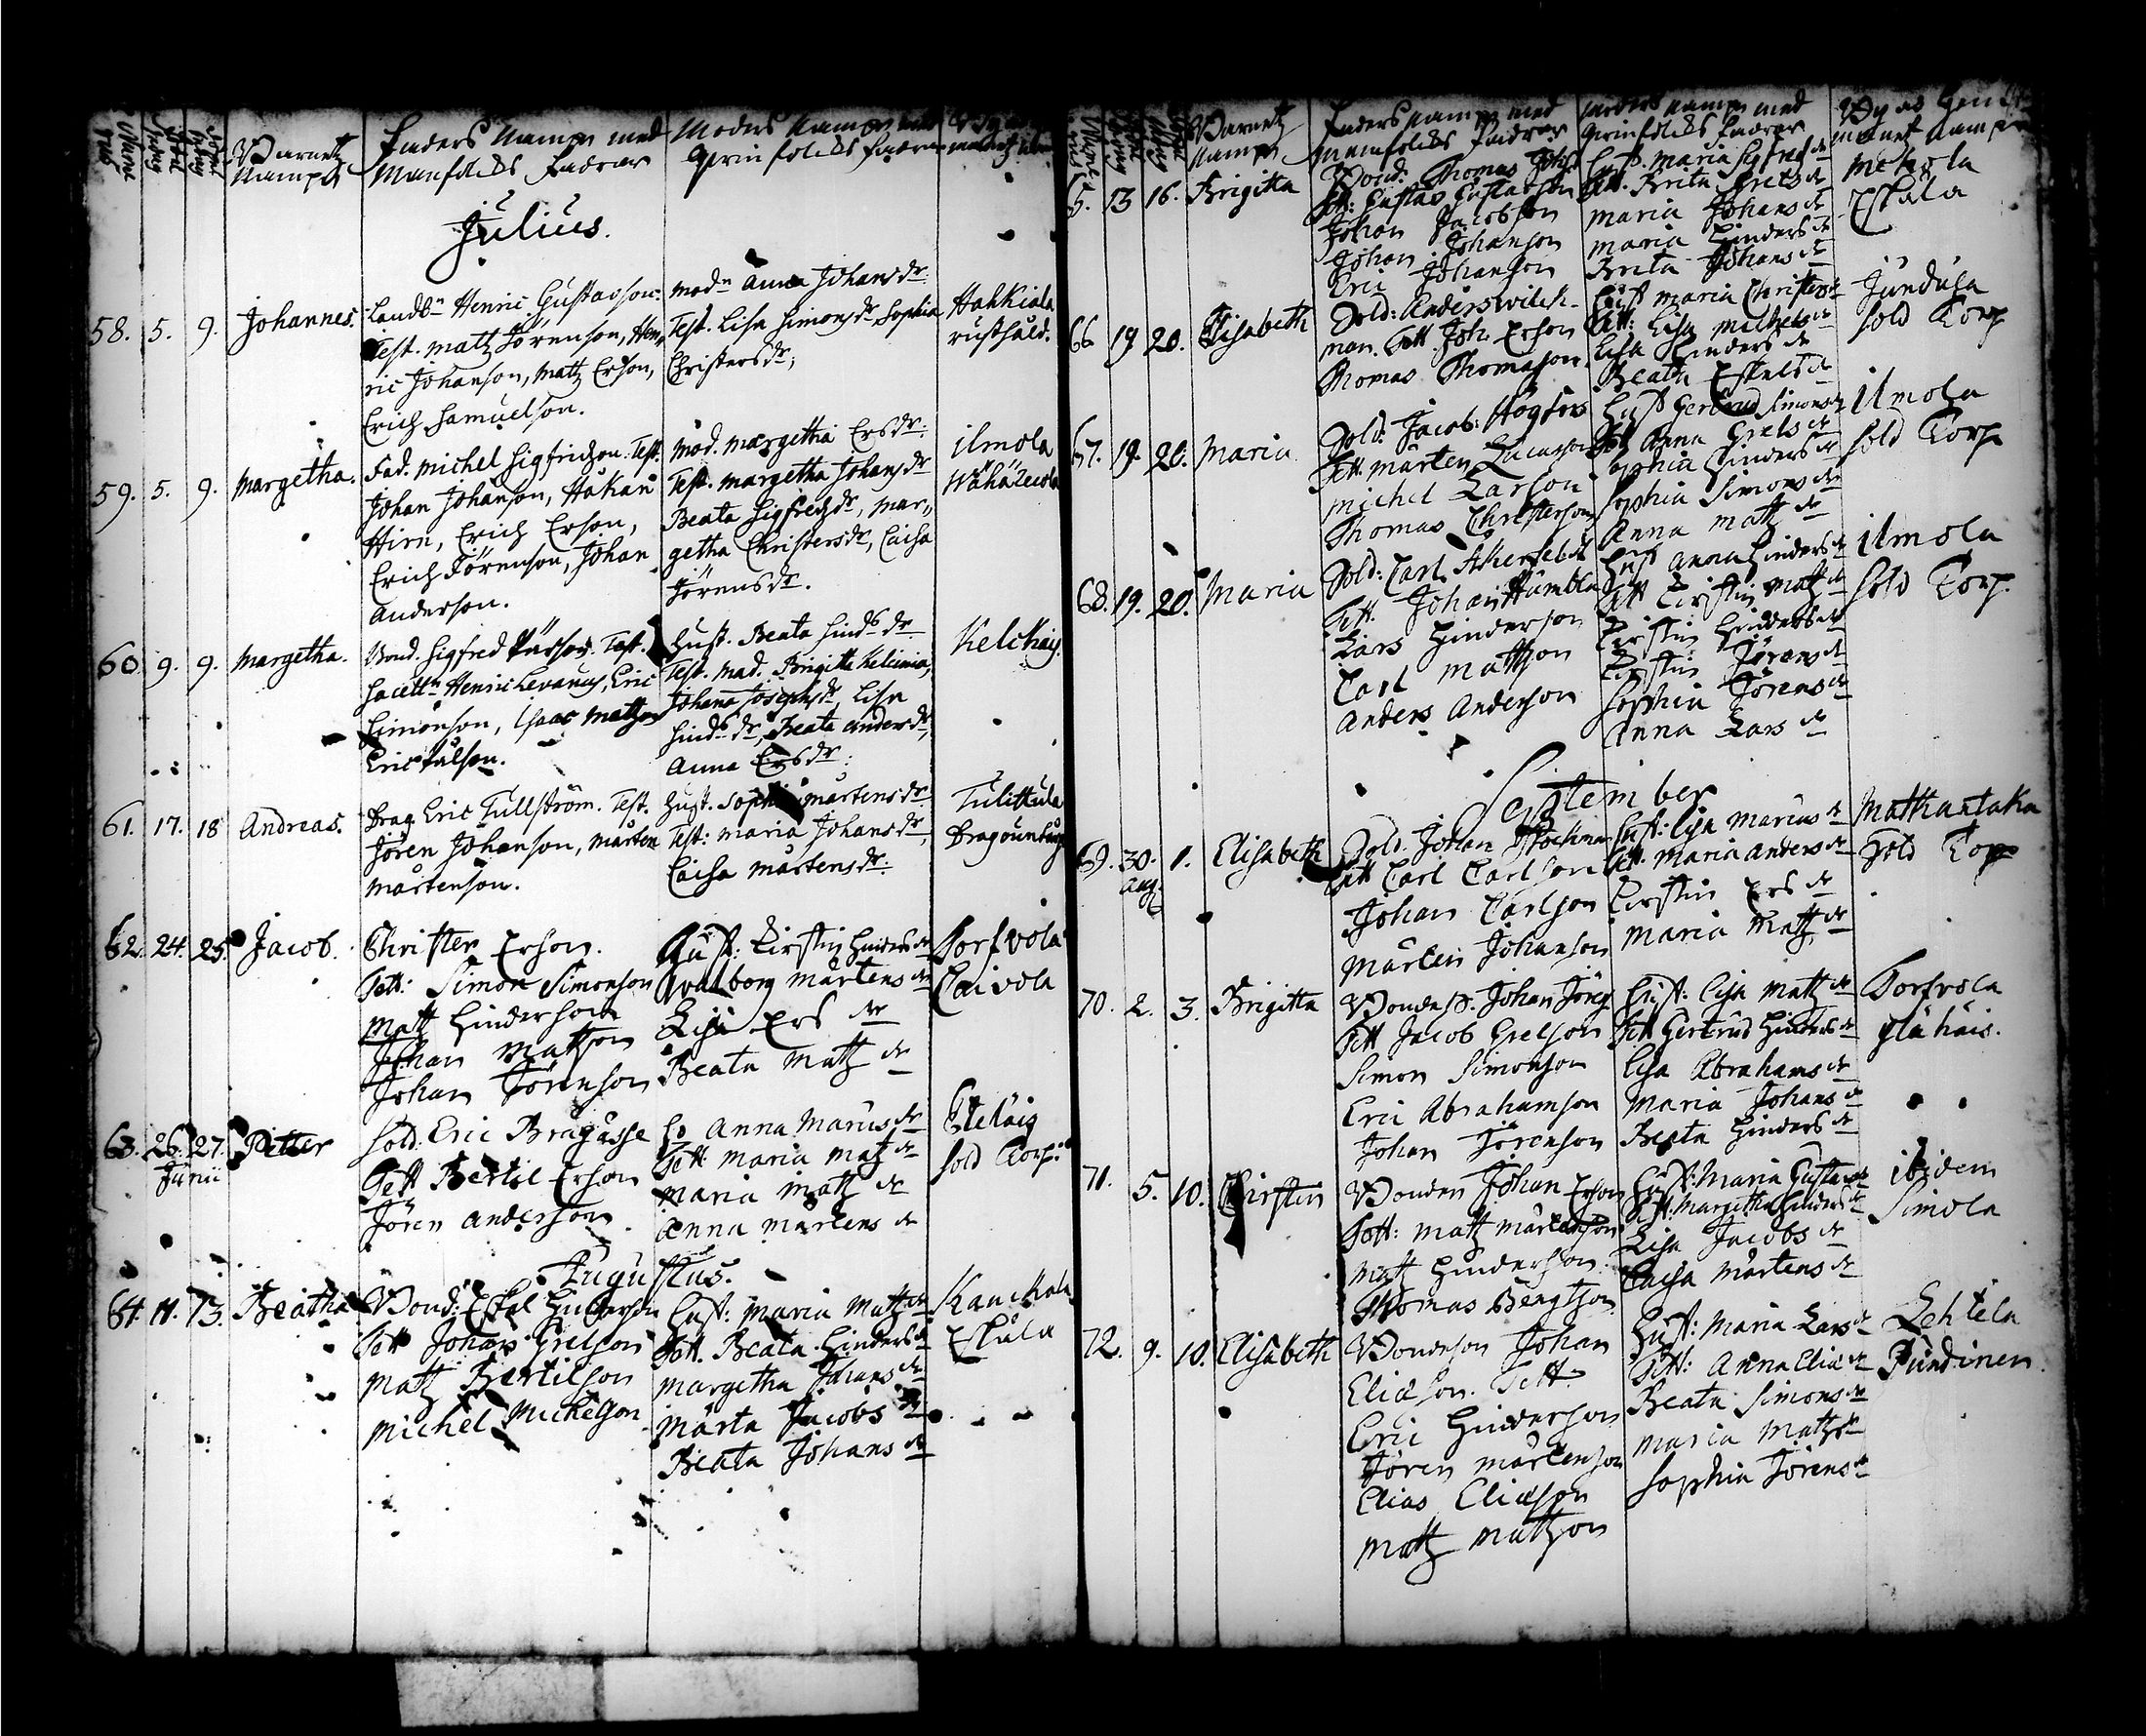 Barnetz Nampn
Faders Nampn med Manfolcks Fadrar
Moders Nampn med Qvinfolcks Fadrar
Julius.
58. 5. 9. Johannes.
Landbn Henric Gustavson.
Test. Matz Jörenson, Hen-
ric Johanson, Matz Erson,
Erich Samuelson.
Modn Anna Johansdr
Test. Lisa Simonsdr, Sophia
Christersdr,
Hahkiala
rusthåld.
59. 5. 9. Margetha.
Fad. Michel Sigfridzon. Test.
Johan Johanson, Håkan
Hirn, Erich Erson,
Erich Jörenson, Johan
Anderson.
Mod. Margetha Ersdr.
Test. Margetha Johansdr
Beata Sigfredzdr, Mar-
getha Christersdr, Caisa
Jörensdr.
ilmola
60. 9. 9. Margetha.
Bond. Sigfred Pålson. Test.
Sacelln Henric Levanus, Eric
Simonson, Isaac Matzon
Eric Pålson.
Hust. Beata Hindsdr
Test. Mad. Brigitta
Johana Josephsdr, Lisa
Hindsdr, Beata Andersdr,
Anna Ersdr.
Kelchais
61. 17. 18 Andreas.
Drag. Eric Tullström. Test.
Jören Johanson, Mårten
Mårtenson.
Hust. Sophia Mårtensdr
Test: Maria Johansdr,
Caisa Mårtensdr.
Tulittula
62. 24. 25. Jacob.
Christer Erson.
Tett: Simon Simonson
Matz Hinderson
Johan Matzon
Johan Jörenson
Hust: Cirstin Hindersdr
Walborg Mårtensdr
Lisa Ers dr
Beata Matz dr
Torfvola
Caivola
63. 26. 27. Petter
Junii
Sold. Eric Bragusse
Tett Bertil Erson
Jören Anderson
H. Anna Marcusdr
Tett Maria Matz dr
Maria Matz dr
Anna Mårtens dr
Etehäis
Sold Torp.
Augustus.
64. 11. 13. Beatha
Bond: Eskel Hinderson
Tett Johan Grelson
Matz Bertilson
Michel Michelson
Hust: Maria Matz dr
Tett. Beata Hinders dr
Margetha Johans dr
Märta Jacobs dr
Beata Johans dr
Eskula
Barnetz Nampn
Faders Nampn med Manfolcks Fadrar
Qvinfolcks Fadrar
65. 13 16. Brigitta
Bond: Thomas Johs
Tett: Gustav Gustavson
Johan Jacobson
Johan Johanson
Eric Johanson
Hust. Maria Sigfredsdr
Tett. Brita Grelsdr
Maria Johans dr
Maria Hinders dr
Brita Johans dr
Mekola
Eskula
66 19 20. Elisabeth
Sold: Anders Wilck-
man. Tett. Joh. Erson
Thomas Thomason.
Hust Maria Christersdr
Tett: Lisa Michelsdr
Lisa Hinders dr
Beata Eskelsdr
Jundula
Sold Torp
67. 19. 20. Maria
Sold: Jacob Högfors
Tett. Mårten Lucasson
Michel Larson
Thomas Christerson
Hust Gertrud Simonsdr
Tett Anna Grels dr
Sophia Hinders dr
Sophia Simons dr
Anna Matz dr
ilmola
Sold Torp
68. 19. 20. Maria
Sold: Carl
Tett. Johan Humbla
Lars Hinderson
Carl Matzon
Anders Anderson
Hust Anna Hindersdr
Tett Cirstin Matz dr
Cirstin Hindersdr
Cirstin Jörens dr
Sophia Jörens dr
Anna Lars dr
ilmola
Sold Torp.
September
69. 30. 1. Elisabeth
Aug.
Sold. Johan Stockman
Tett Carl Carlson
Johan Carlson
Mårten Johanson
Hust: Lisa Marcus dr
Tett. Maria Anders dr
Cirstin Ers dr
Maria Matz dr
Mathantaka
Sold Torp
70. 2. 3. Brigitta
Bondes. Johan Jörs
Tett Jacob Grelson
Simon Simonson
Eric Abrahamson
Johan Jörenson
Hust: Lisa Matz dr
Tett Gertrud Hindersdr
Lisa Abrahams dr
Maria Johans dr
Beata Hinders dr
Torfvola
Ylähäis.
71. 5. 10. Cirsten
Bonden Johan Erson
Tett: Matz Mårtenson
Matz Hinderson
Thomas Bengtson
Hust: Maria Gustavsdr
Tett: Margetha Hindersdr
Lisa Jacobs dr
Caisa Mårtens dr
ibidem
Simola
72. 9. 10. Elisabeth
Bondeson Johan
Eliæson. Tett
Eric Hinderson
Jören Mårtenson
Elias Eliæson
Matz Matzon
Hust: Maria Larsdr
Tett: Anna Eliædr
Beata Simons dr
Maria Matz dr
Sophia Jörens dr
Lehtela
Pundinen.